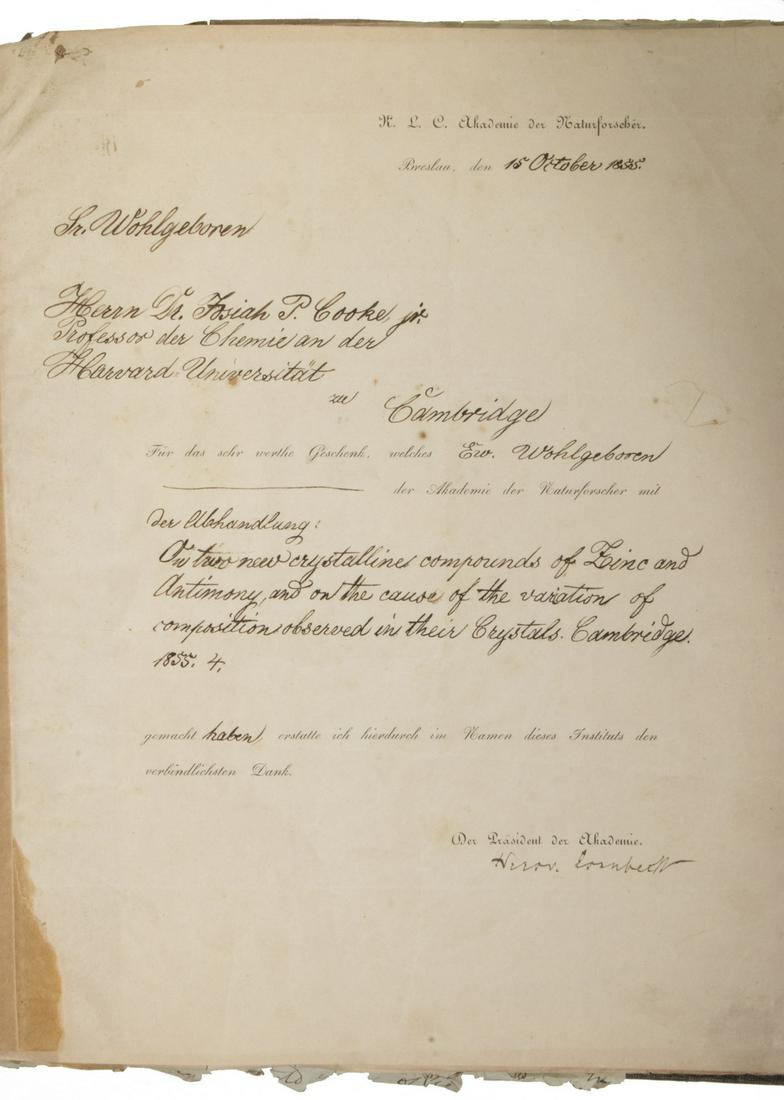 K. L. C. Akademie der Naturforscher.
Breslau, den 15 October 1855.
Sr. Wohlgeboren
Herrn Dr. Josiah P. Cooke, jr.
Professor der Chemie an der
Harvard Universität
zu Cambridge
Für das sehr werthe Geschenk, welches Ew. Wohlgeboren
der Akademie der Naturforscher mit
der Abhandlung:
On two new crystalline compounds of Zinc and
Antimony, and on the cause of the variation of
composition observed in their Crystals. Cambridge.
1855. 4.
gemacht haben, erstatte ich hierdurch im Namen dieses Instituts den
verbindlichsten Dank.
Der Präsident der Akademie.